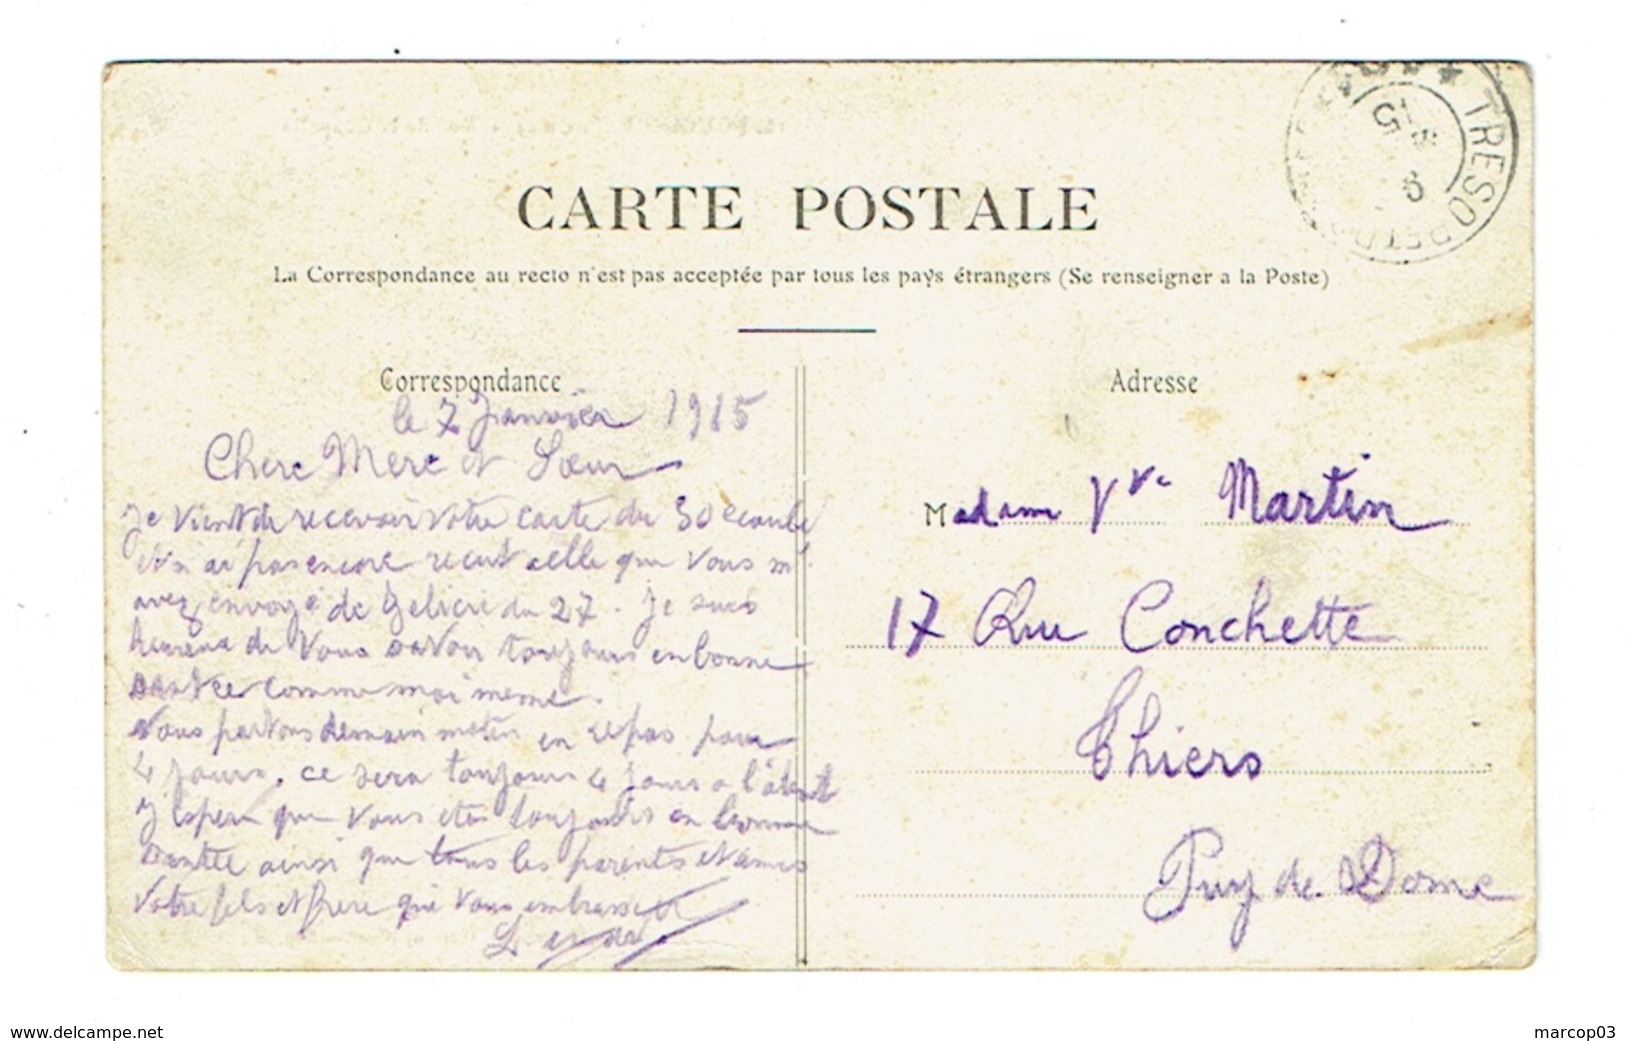 TRESOR ET
15
9
CARTE POSTALE
La Correspondance au recto n'est pas acceptée par tous les pays étrangers (Se renseigner a la Poste)
Correspondance
le 7 Janvier 1915
Chere Mere et Sœur
Je vient de recevoir votre carte du 30 ecoule
et n'ai pas encore recut celle que vous m'
avez envoyé de du 27. Je suis
heureux de vous savoir toujours en bonne
santee comme moi meme.
Nous partons demain matin en repos pour
4 jours. ce sera toujours 4 jours a l'
J'esper que vous etes toujours en bonne
santee ainsi que tous les parents et amis
Votre fils et frere qui vous embrasse
Adresse
Madame Vve Martin
17 Rue Conchette
Thiers
Puy de Dome
www.delcampe.net
marcop03